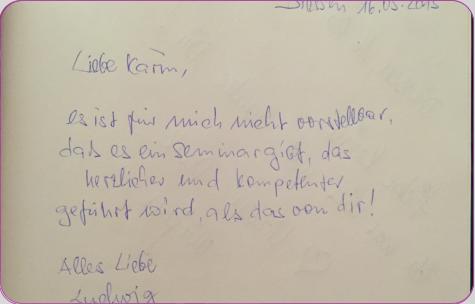 16.03.2013
Liebe Karin,
es ist für mich nicht vorstellbar,
daß es ein Seminar gibt, das
herzlicher und kompetenter
geführt wird, als das von dir!
Alles Liebe
Ludwig